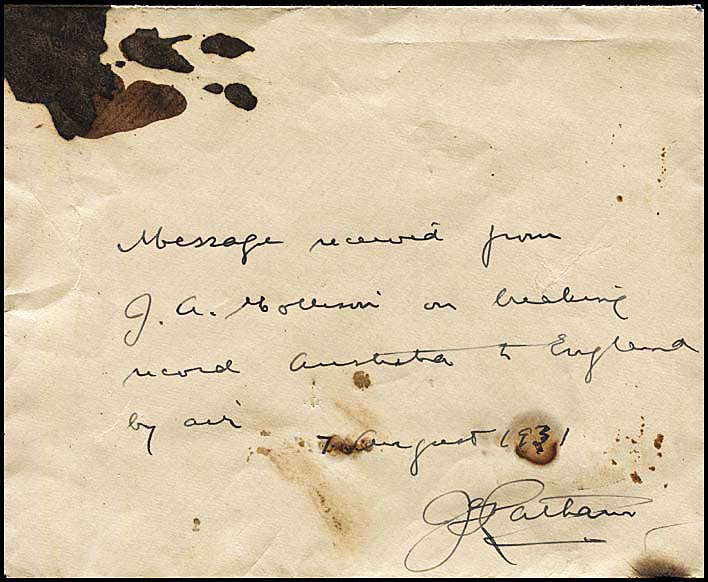 Message received from
J. A. Mollison on breaking
record Australia to England
by air
7 August 1931